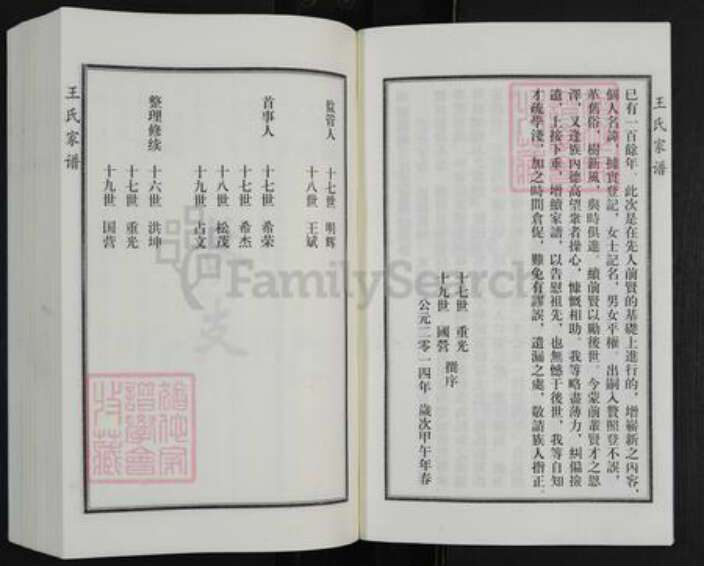 王氏家谱
已有一百餘年，此次是在先人前賢的基礎上進行的，增嶄新之內容，
個人名諱，據實登記，女士記名，男女平權，出嗣入贅照登不誤，
革舊俗，樹新風，與時俱進。續前賢以勵後世。今蒙前輩賢才之恩
澤，又逢族內德高望衆者操心，慷慨相助。我等略盡薄力，糾偏撿
遺，上接下垂，增續家譜，以告慰祖先，也無憾于後世，我等自知
才疏學淺，加之時間倉促，難免有謬誤，遺漏之處，敬請族人指正。
十七世 重光
十九世 國營 撰序
公元二零一四年 歲次甲午年春
监管人 十七世 明辉
十八世 王斌
首事人 十七世 希荣
十七世 希杰
十八世 松茂
十九世 占文
整理修续 十六世 洪坤
十七世 重光
十九世 国营
王氏家谱
FamilySearch